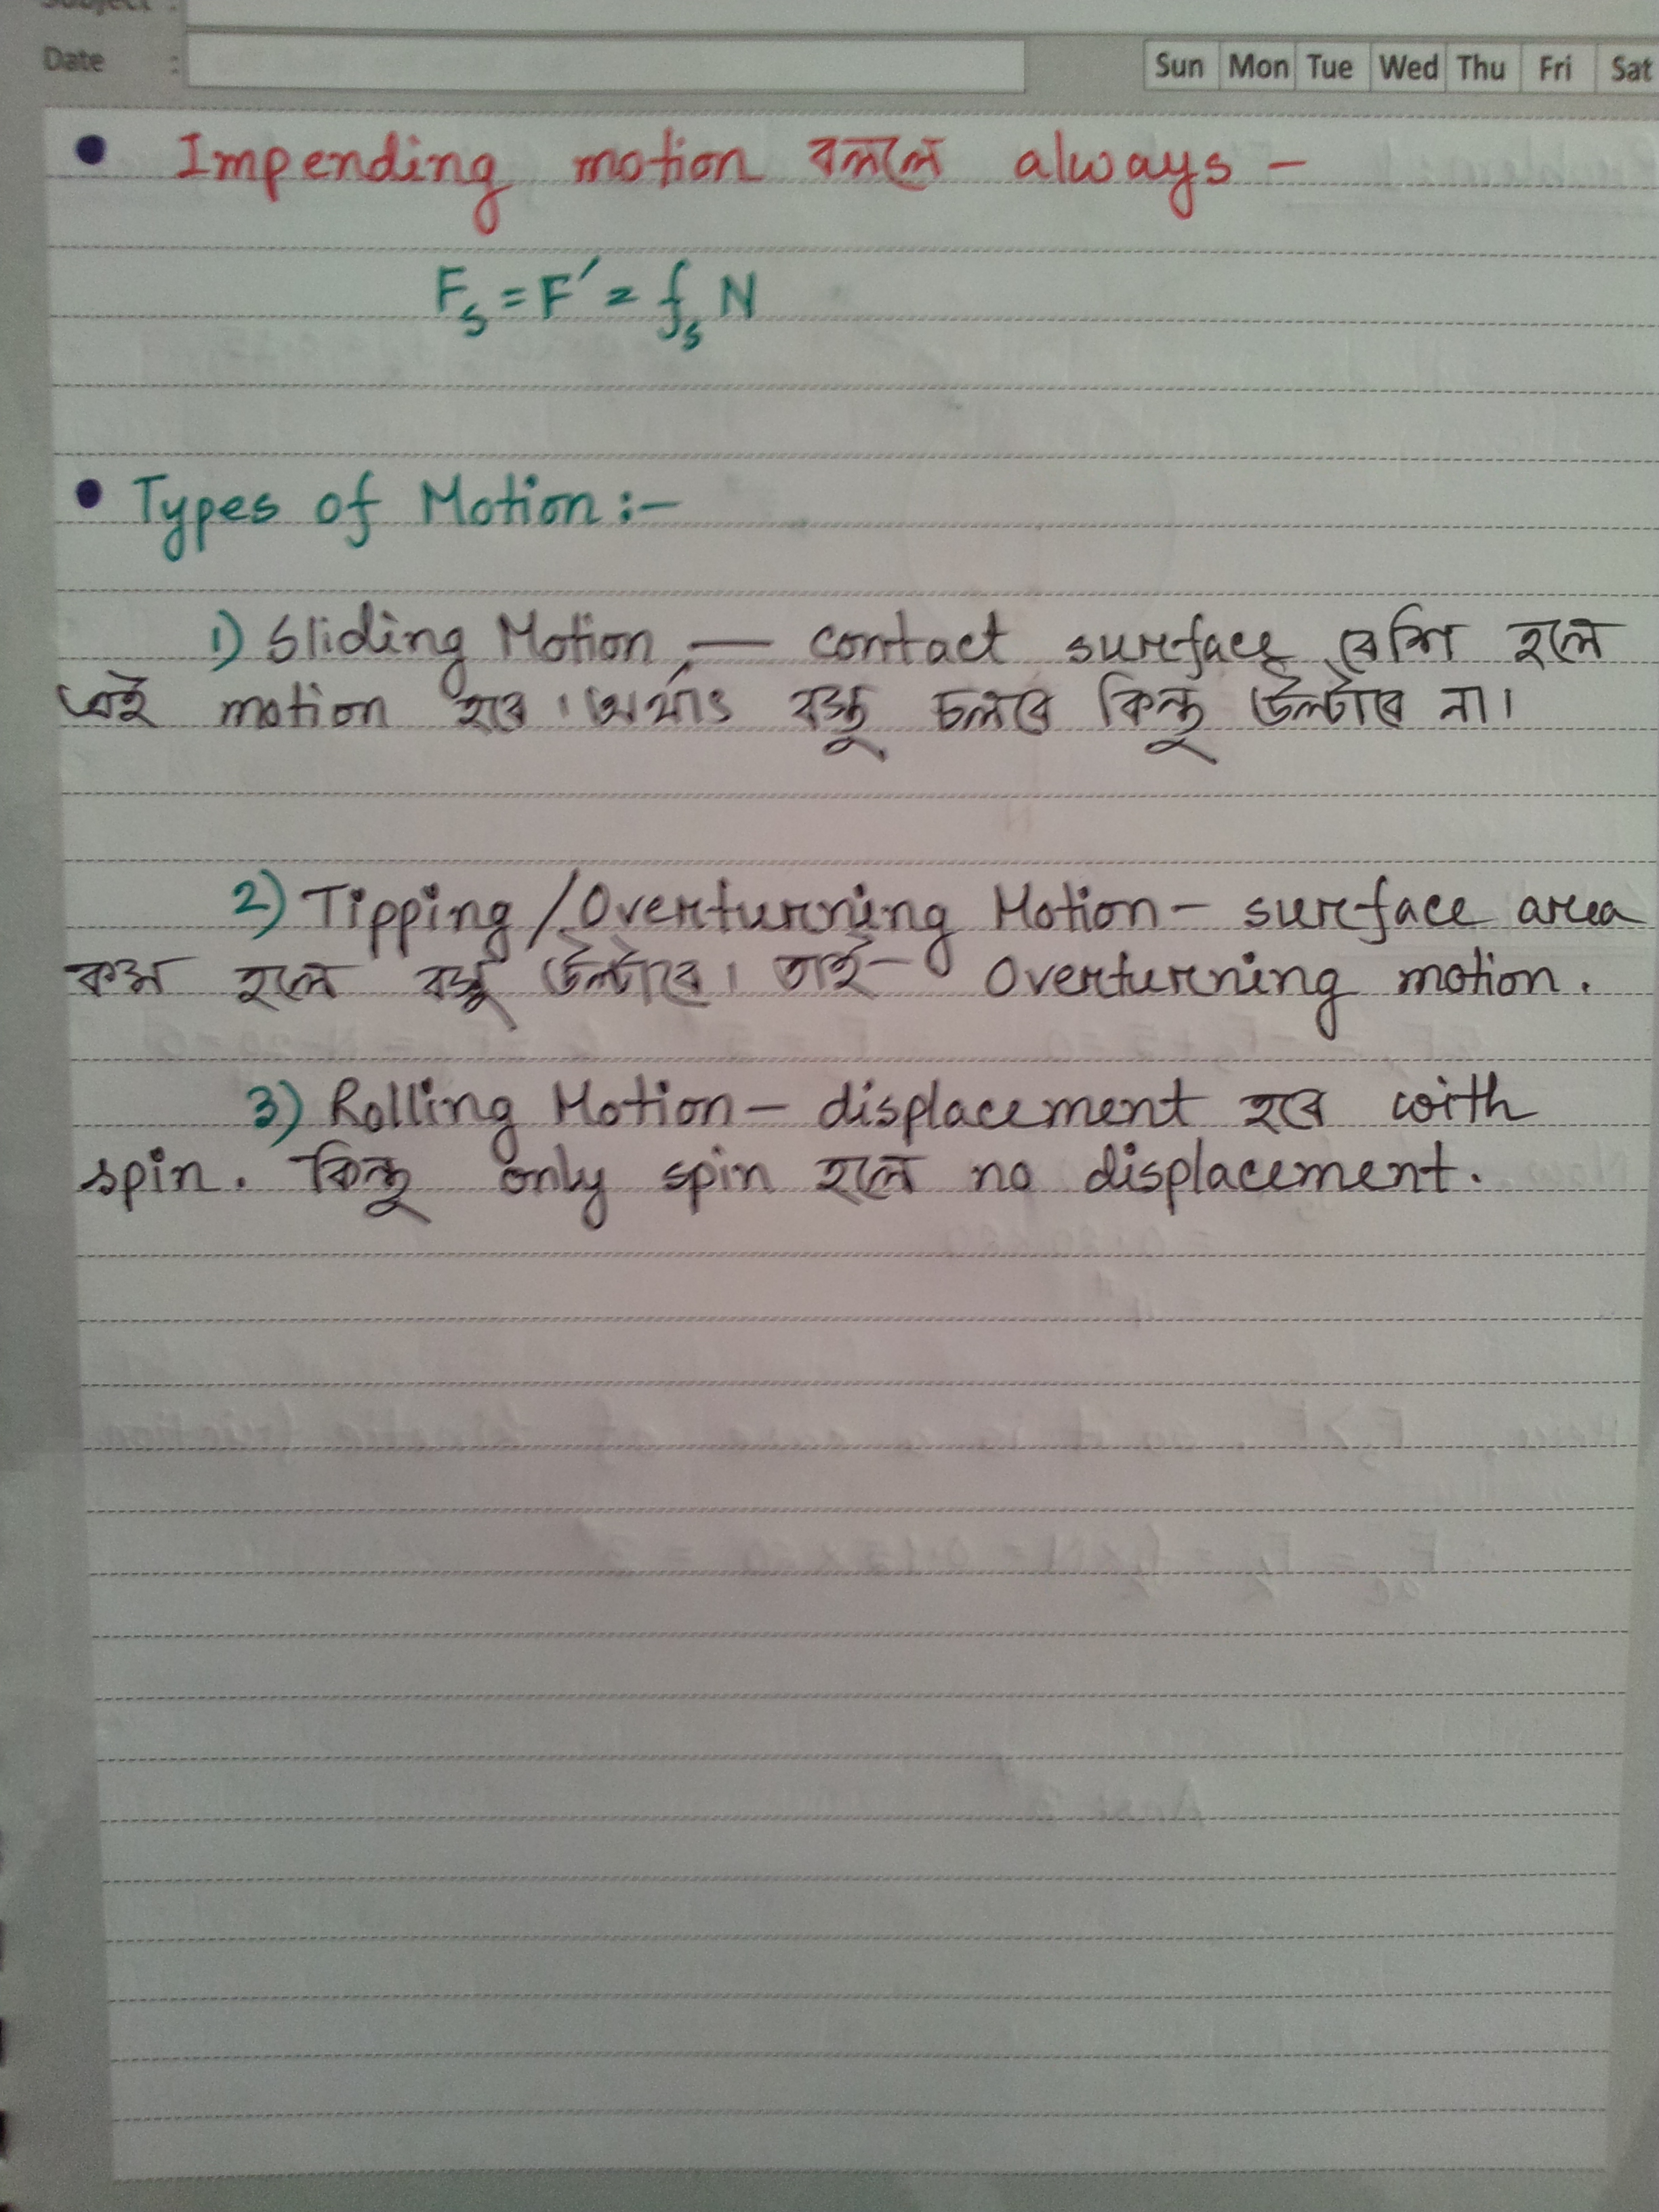 Subject :
Date :
Sun Mon Tue Wed Thu Fri Sat
• Impending motion বললে always –
F_s = F′ = f_s N
• Types of Motion :–
1) Sliding Motion — contact surface বেশি হলে
এই motion হবে। অর্থাৎ বস্তু চলবে কিন্তু উল্টাবে না।
2) Tipping/Overturning Motion – surface area
কম হলে বস্তু উল্টাবে। তাই – Overturning motion.
3) Rolling Motion – displacement হবে with
spin. কিন্তু only spin হলে no displacement.